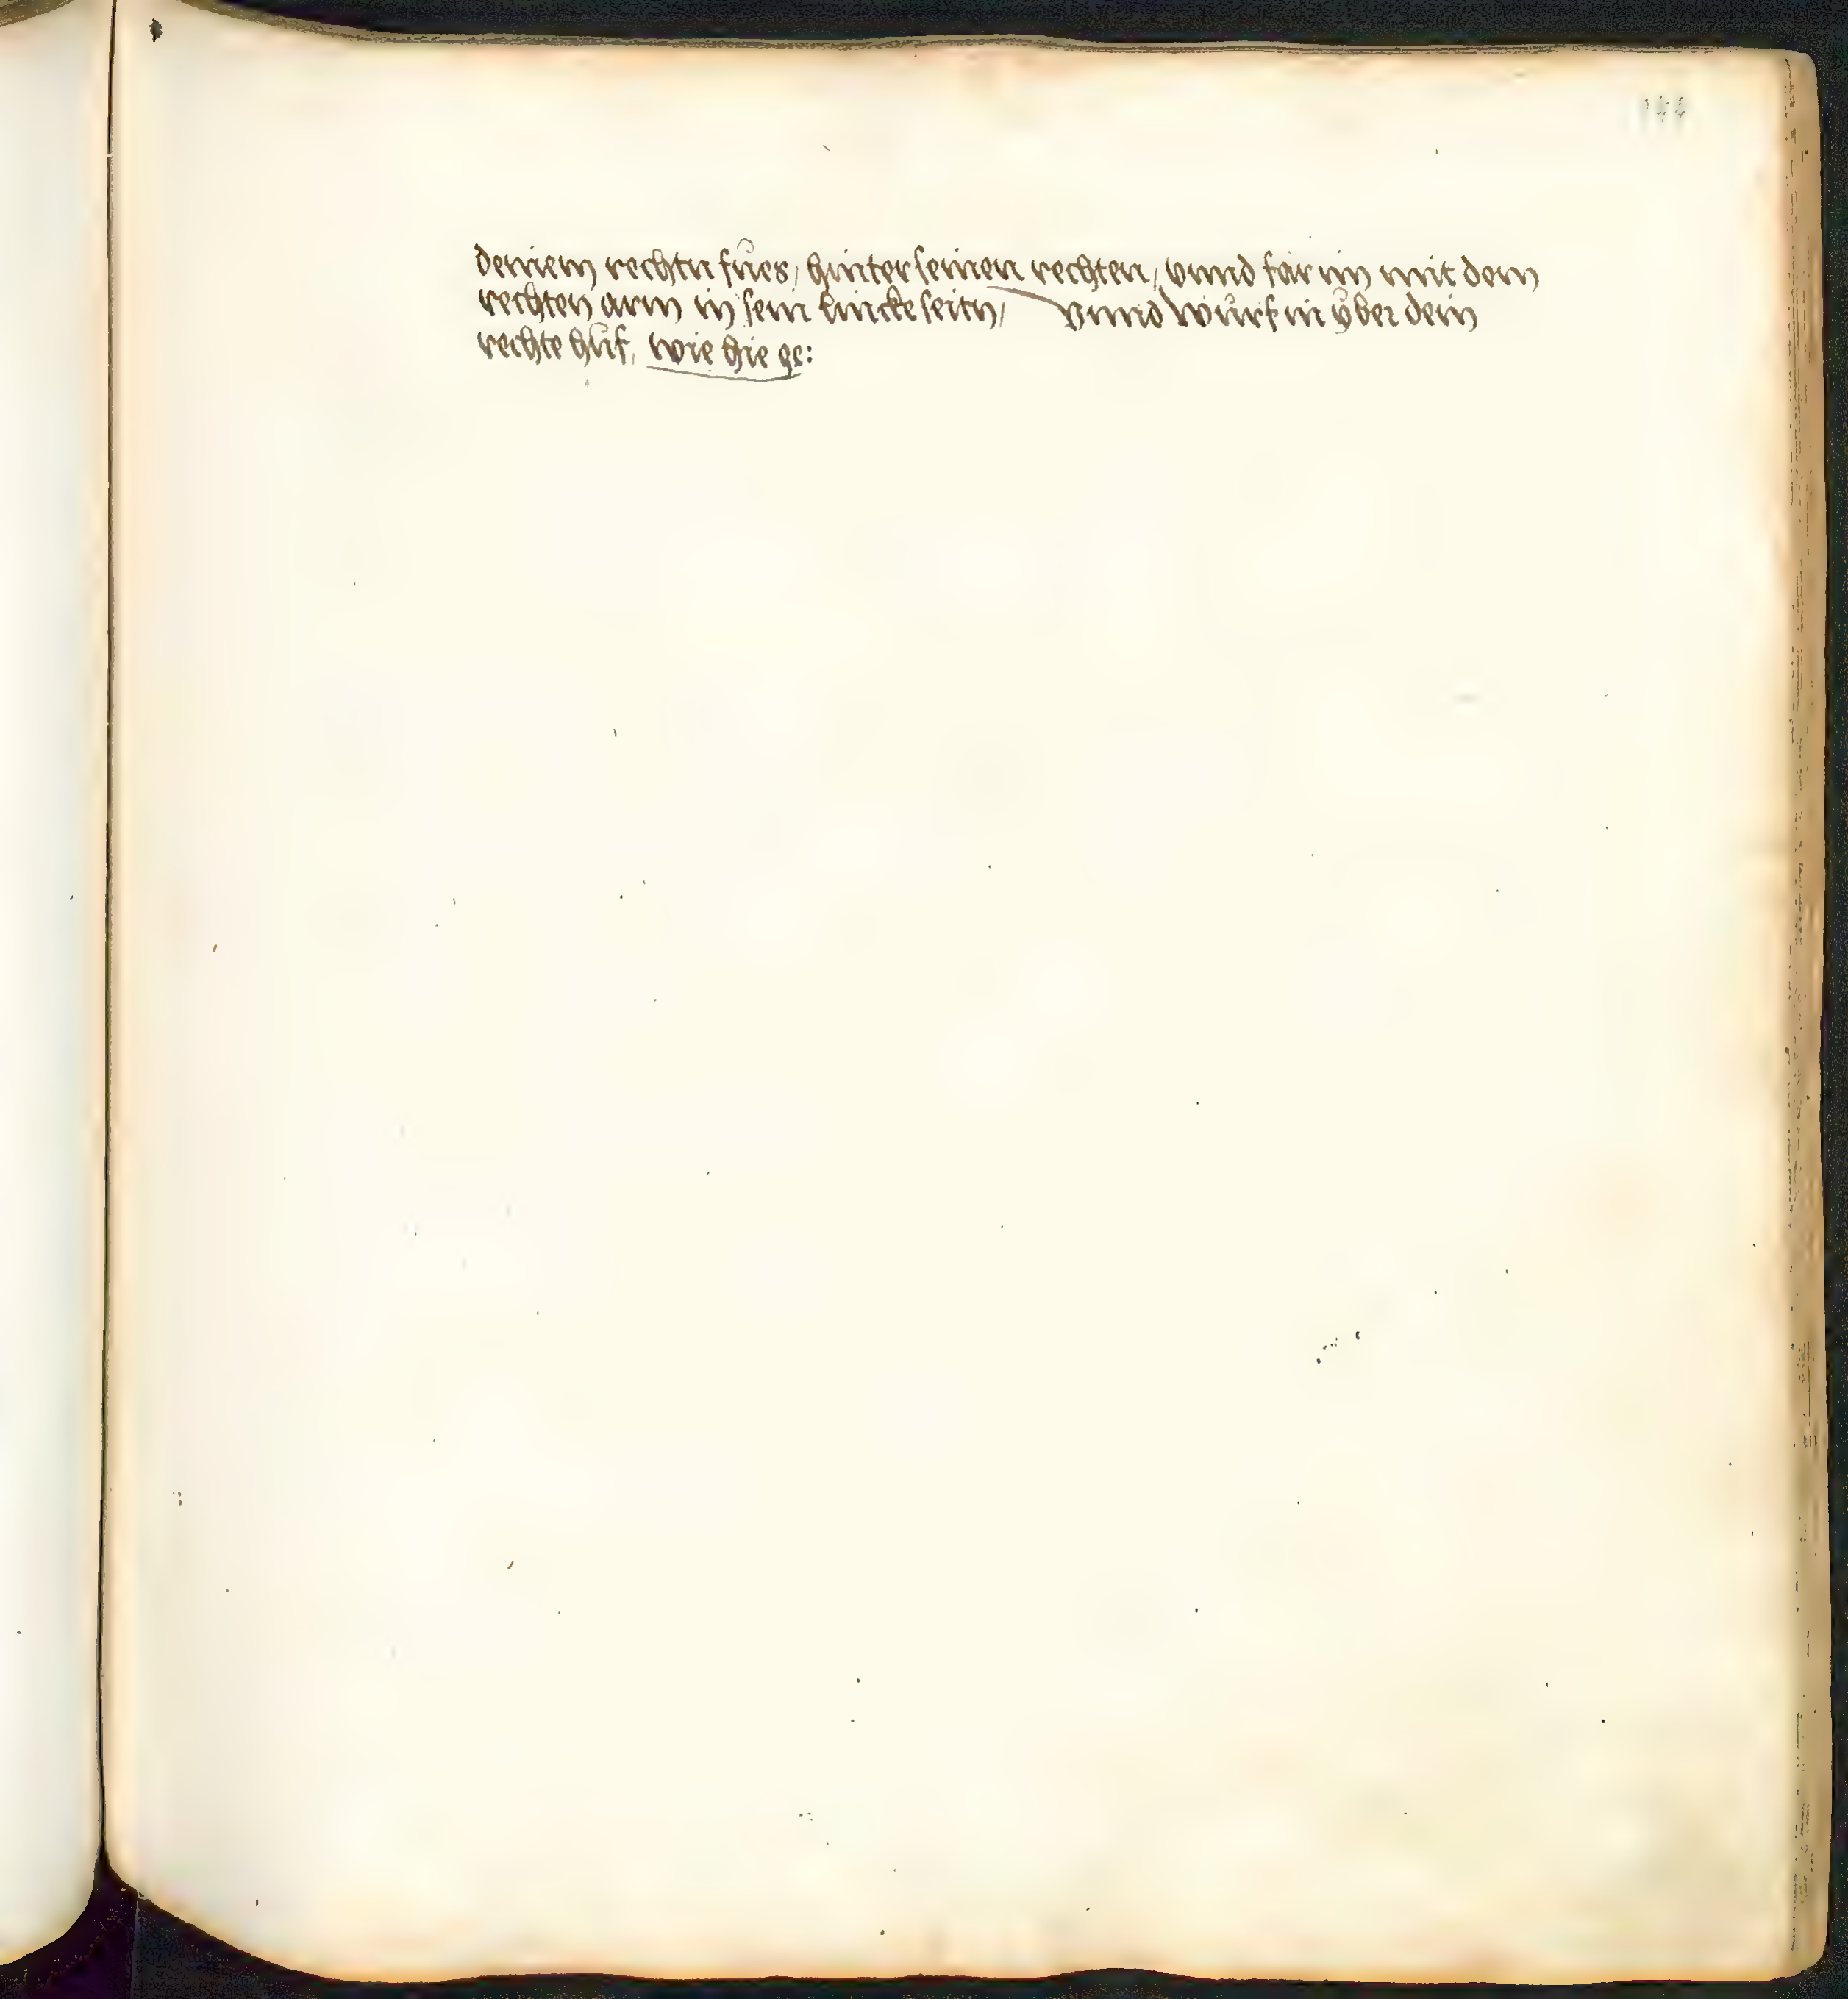 deinem rechtn fůes, hinter seinen rechten, vnnd far im mit dem
rechten arm in sein lincke seitn, vnnd würf in vber dein
rechte hůf, wie hie ge: